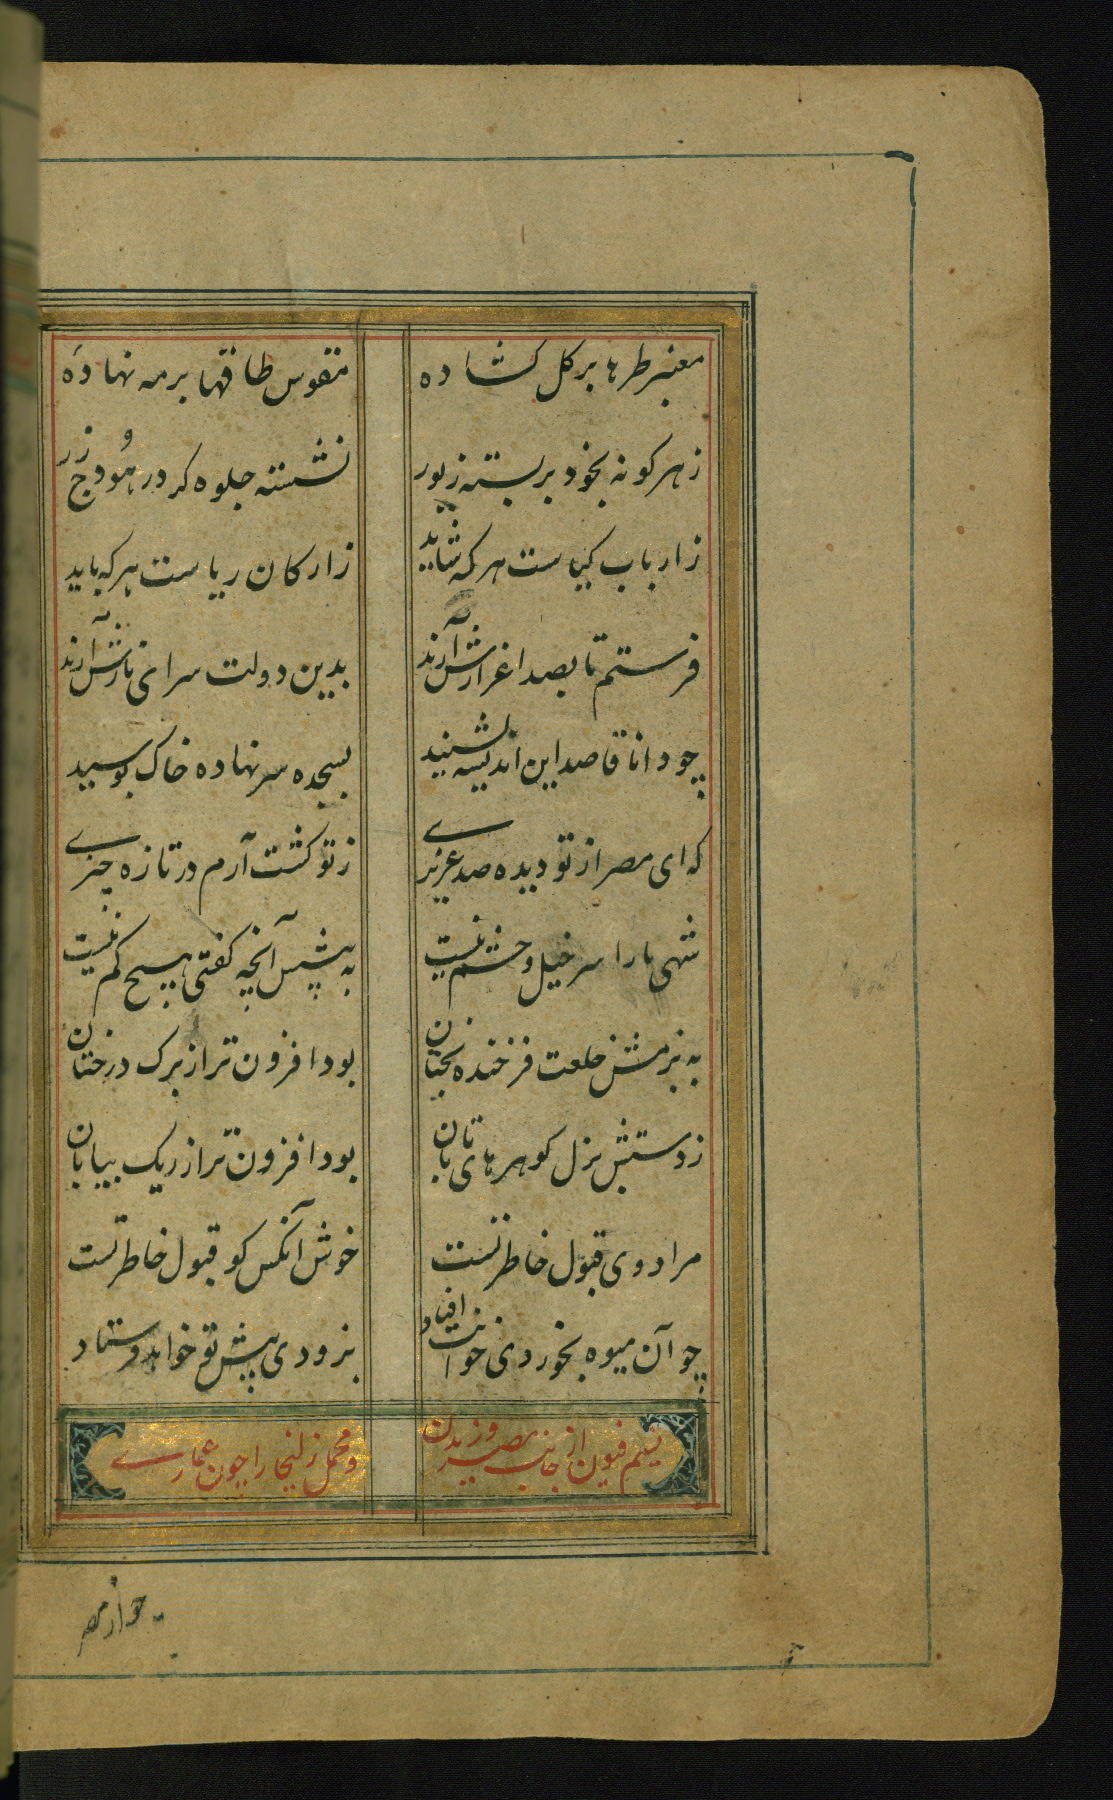 معنبر طرها بر کل کشاده
مقوس طاقها بر مه نهاده
زهر کونه بخود بر بسته زیور
نشسته جلوه کر در هودج زر
ز ارباب کیاست هر که شاید
ز ارکان ریاست هر که باید
فرستم تا بصد اعزازش آرند
بدین دولت سرای نازش آرند
چو دانا قاصد این اندیشه بشنید
بسجده سر نهاده خاک بوسید
که ای مصر از تو دیده صد عزیزی
ز تو کشت آرم در تازه چیزی
شهی ما را سر خیل و حشم نیست
به پیش آنچه کفتی هیچ کم نیست
به بزمش خلعت فرخنده بختان
بود افزون تر از برک درختان
ز دستش بزل کوهرهای تابان
بود افزون تر از ریک بیابان
مراد وی قبول خاطر تست
خوش آنکس کو قبول خاطر تست
چو آن میوه بخورد نی خوانت افتاد
بزودی پیش تو خواهد فرستاد
نسیم قبول از جانب مصر وزیدن
و محمل زلیخا را چون عماری
چو از مصر